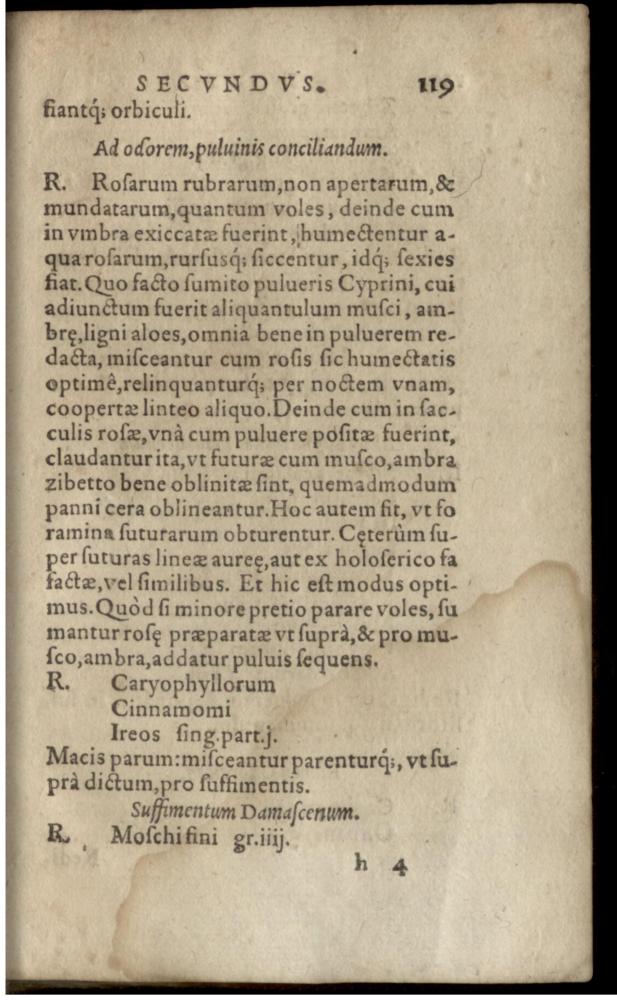 SECVNDVS. 119
fiantq́; orbiculi.
Ad odorem, puluinis conciliandum.
R. Roſarum rubrarum, non apertarum, &
mundatarum, quantum voles, deinde cum
in vmbra exiccatæ fuerint, humectentur a-
qua roſarum, rurſusq́; ſiccentur, idq́; ſexies
fiat. Quo facto ſumito pulueris Cyprini, cui
adiunctum fuerit aliquantulum muſci, am-
brę, ligni aloes, omnia bene in puluerem re-
dacta, miſceantur cum roſis ſic humectatis
optimê, relinquanturq́; per noctem vnam,
coopertæ linteo aliquo. Deinde cum in ſac-
culis roſæ, vnà cum puluere poſitæ fuerint,
claudantur ita, vt futuræ cum muſco, ambra
zibetto bene oblinitæ ſint, quemadmodum
panni cera oblineantur. Hoc autem fit, vt fo
ramina ſuturarum obturentur. Cęterùm ſu-
per ſuturas lineæ aureę, aut ex holoſerico fa
factæ, vel ſimilibus. Et hic eſt modus opti-
mus. Quòd ſi minore pretio parare voles, ſu
mantur roſę præparatæ vt ſuprà, & pro mu-
ſco, ambra, addatur puluis ſequens.
R. Caryophyllorum
Cinnamomi
Ireos ſing. part. j.
Macis parum: miſceantur parenturq́;, vt ſu-
prà dictum, pro ſuffimentis.
Suffimentum Damaſcenum.
R. Moſchi fini gr. iiij.
h 4